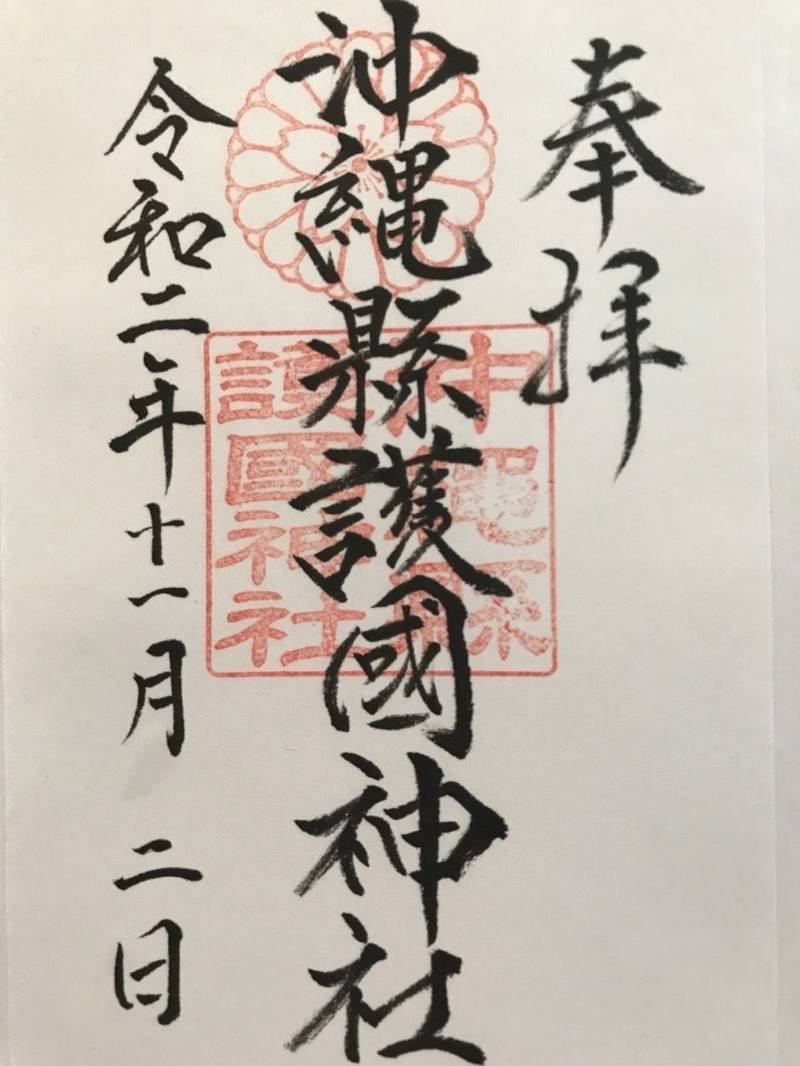 奉拝
沖縄縣護國神社
沖縄縣
護國神社
令和二年十一月 二日